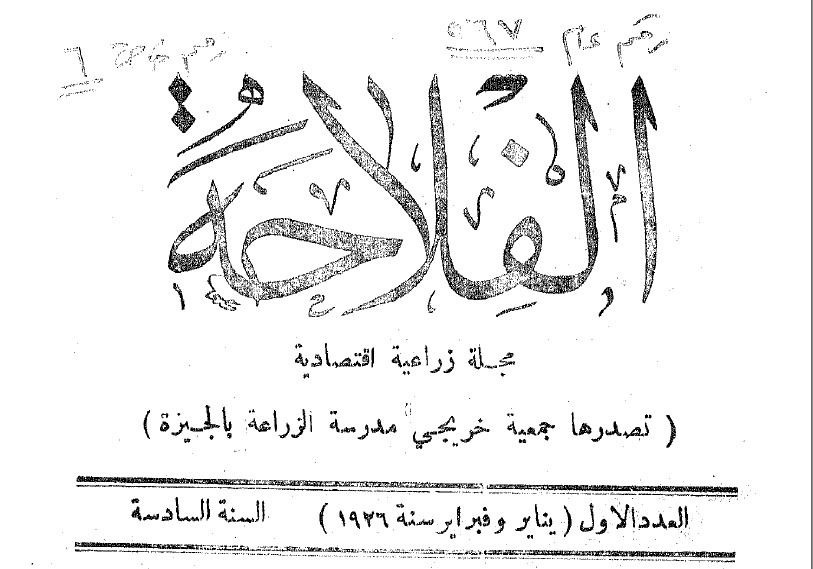 رقم عام ٥٦٧
رقم خاص ٦
الفلاحة
مجلة زراعية اقتصادية
( تصدرها جمعية خريجي مدرسة الزراعة بالجيزة )
العدد الاول ( يناير و فبراير سنة ١٩٢٦ ) السنة السادسة